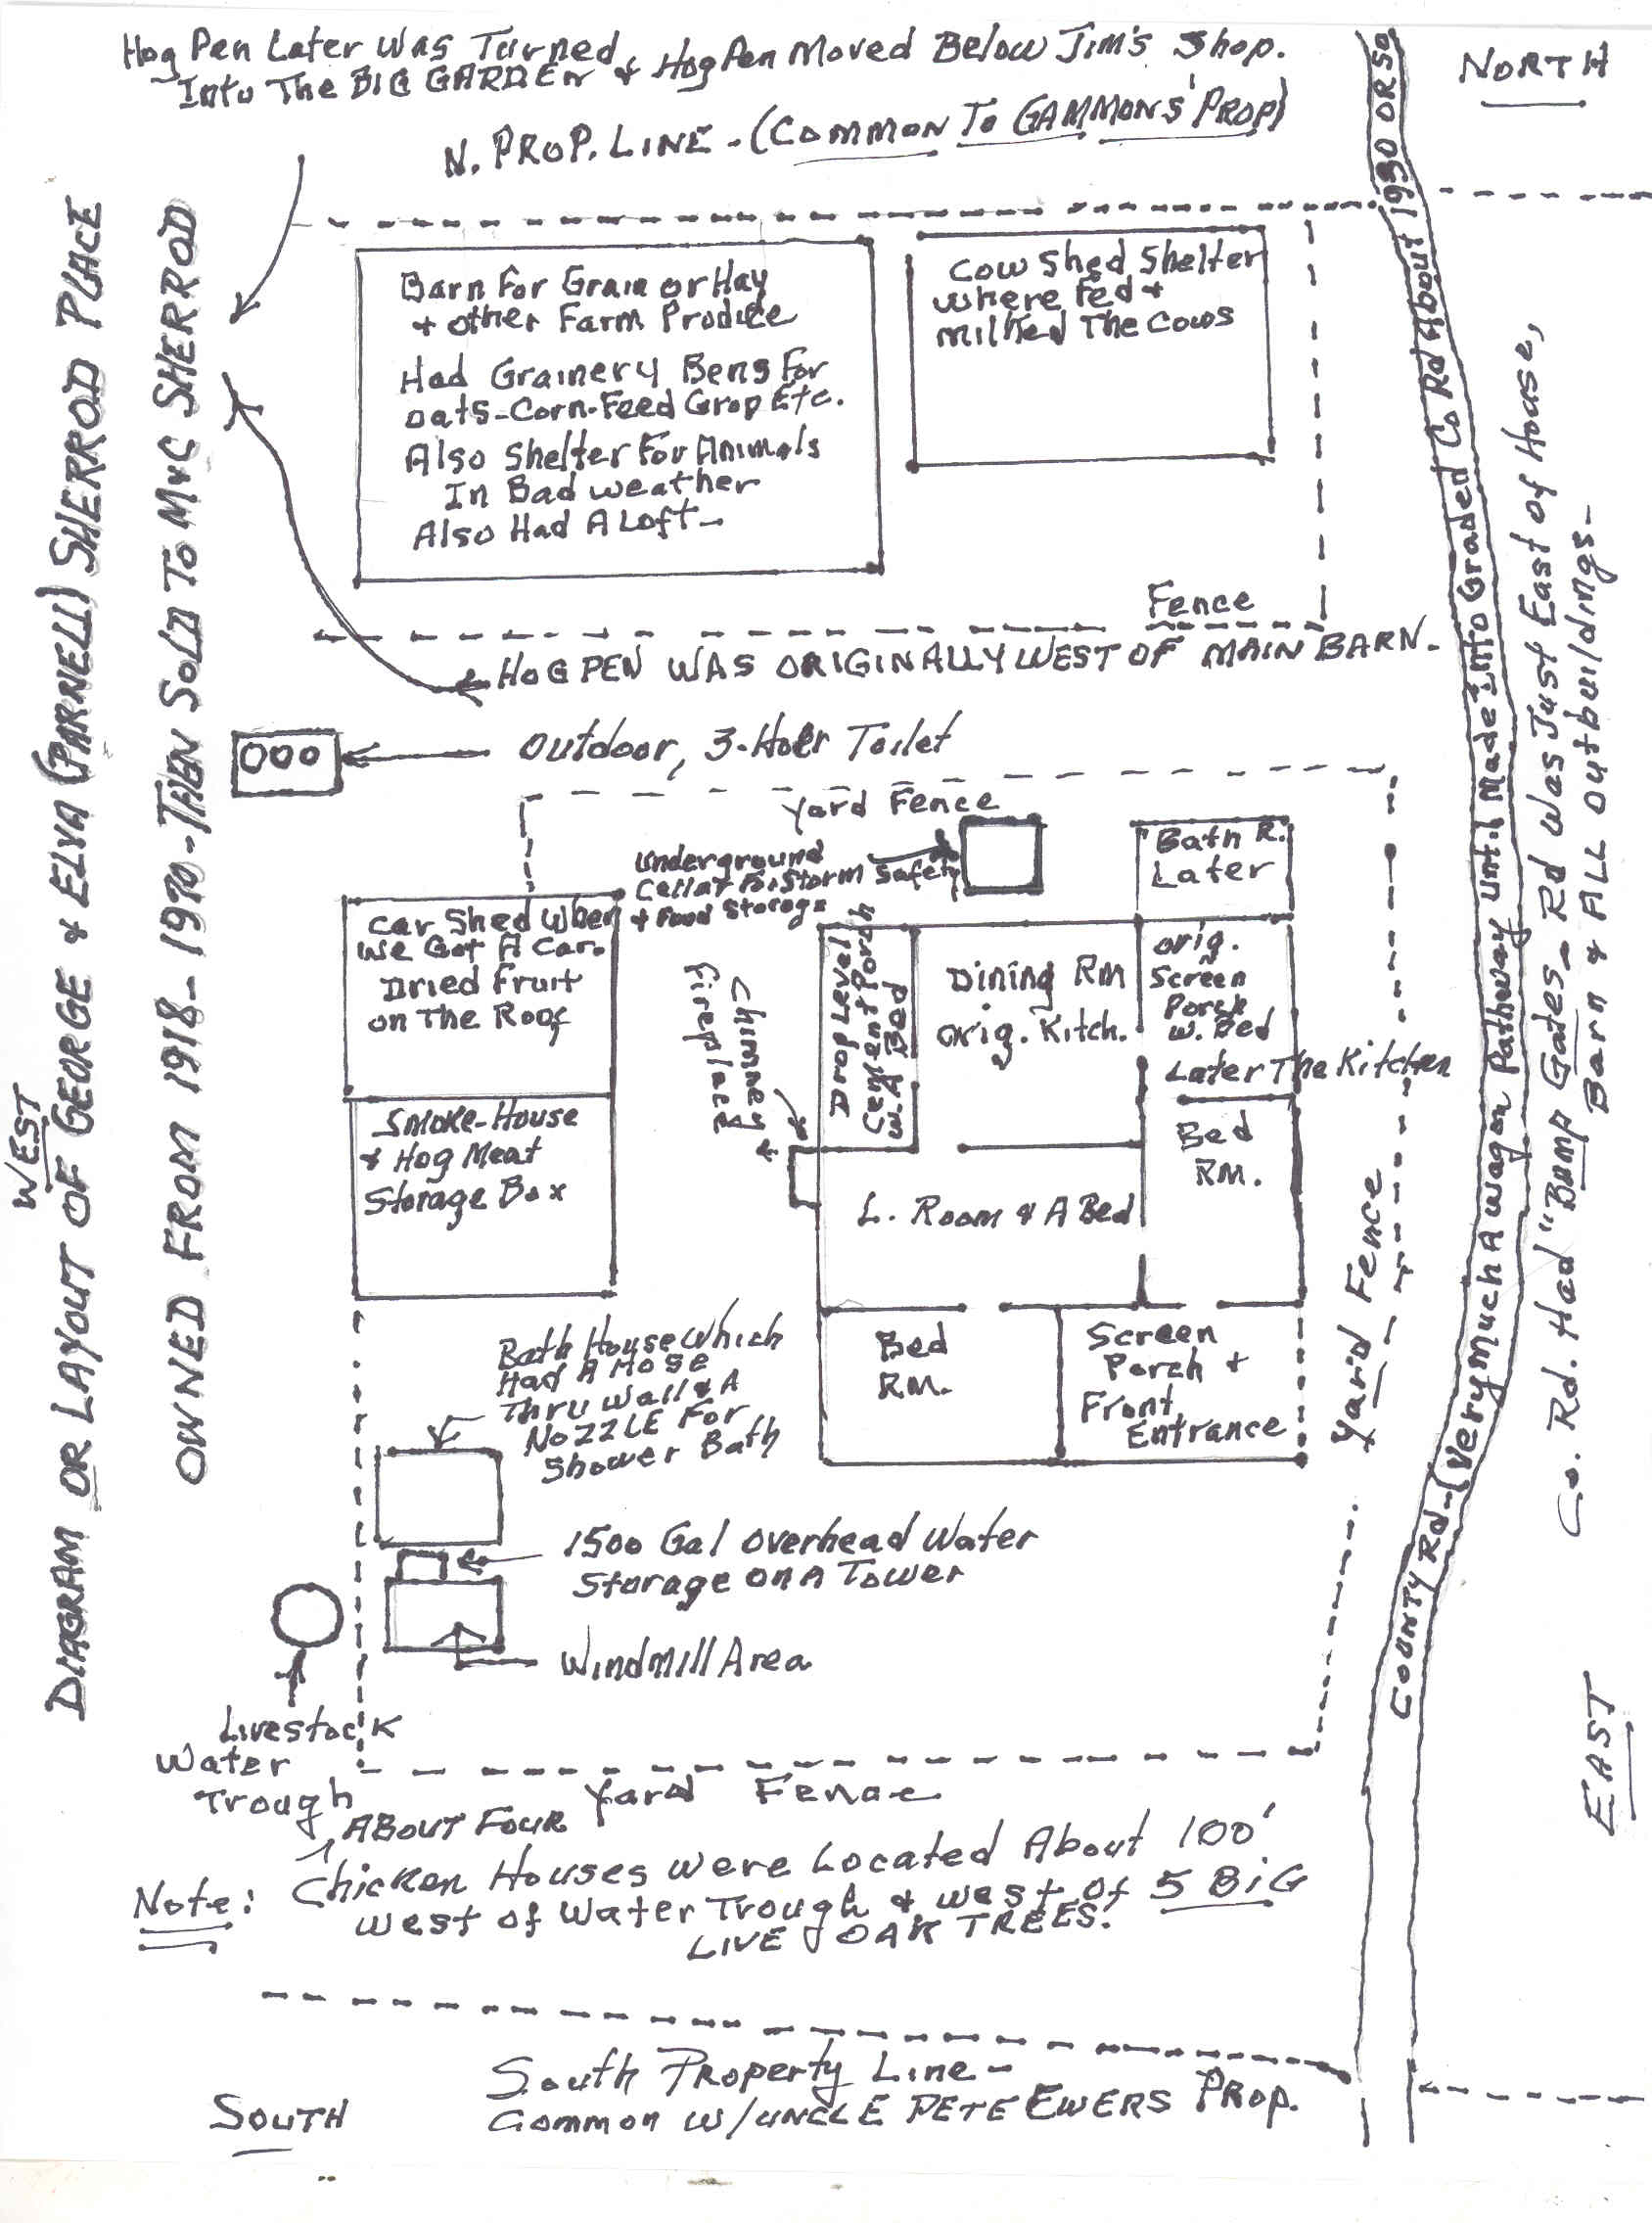 Hog Pen Later Was Turned
Into The BIG GARDEN & Hog Pen Moved Below Jim's Shop.
NORTH
N. PROP. LINE - (COMMON TO GAMMONS' PROP)
DIAGRAM OR LAYOUT OF GEORGE & ELVA (PARNELL) SHERROD PLACE
WEST
OWNED FROM 1918 - 1970 - THEN SOLD TO M&C SHERROD
Barn For Grain or Hay
& other Farm Produce
Had Grainery Bens For
oats-Corn-Feed Grop Etc.
Also Shelter For Animals
In Bad weather
Also Had A Loft -
Cow Shed Shelter
where Fed &
milked The Cows
Fence
HOG PEN WAS ORIGINALLY WEST OF MAIN BARN.
Outdoor, 3-Holer Toilet
Yard Fence
Underground
Cellar For Storm Safety
& Food Storage
Bath R.
Later
Car Shed When
We Got A Car.
Dried Fruit
on The Roof
Smoke-House
& Hog Meat
Storage Box
Chimney &
Fireplace
Drop Level
Cement Porch
w. A Bed
Dining RM
orig. Kitch.
orig.
Screen
Porch
w. Bed
Later The Kitchen
Bed
RM.
L. Room & A Bed
Bed
RM.
Screen
Porch &
Front
Entrance
Yard Fence
Bath House Which
Had A Hose
Thru Wall & A
NoZZLE For
Shower Bath
1500 Gal Overhead Water
Storage on A Tower
Windmill Area
Livestock
Water
Trough
Yard Fence
COUNTY Rd - (Very Much A wagon Pathway until Made Into Graded Co Rd About 1930 OR SO
Co. Rd. Had "BUMP Gates - Rd Was Just East of House,
Barn & ALL outbuildings -
EAST
ABOUT FOUR
Note: Chicken Houses were Located About 100'
west of Water Trough & west of 5 BIG
LIVE OAK TREES.
South Property Line -
Common w/UNCLE PETE EWERS PROP.
SOUTH